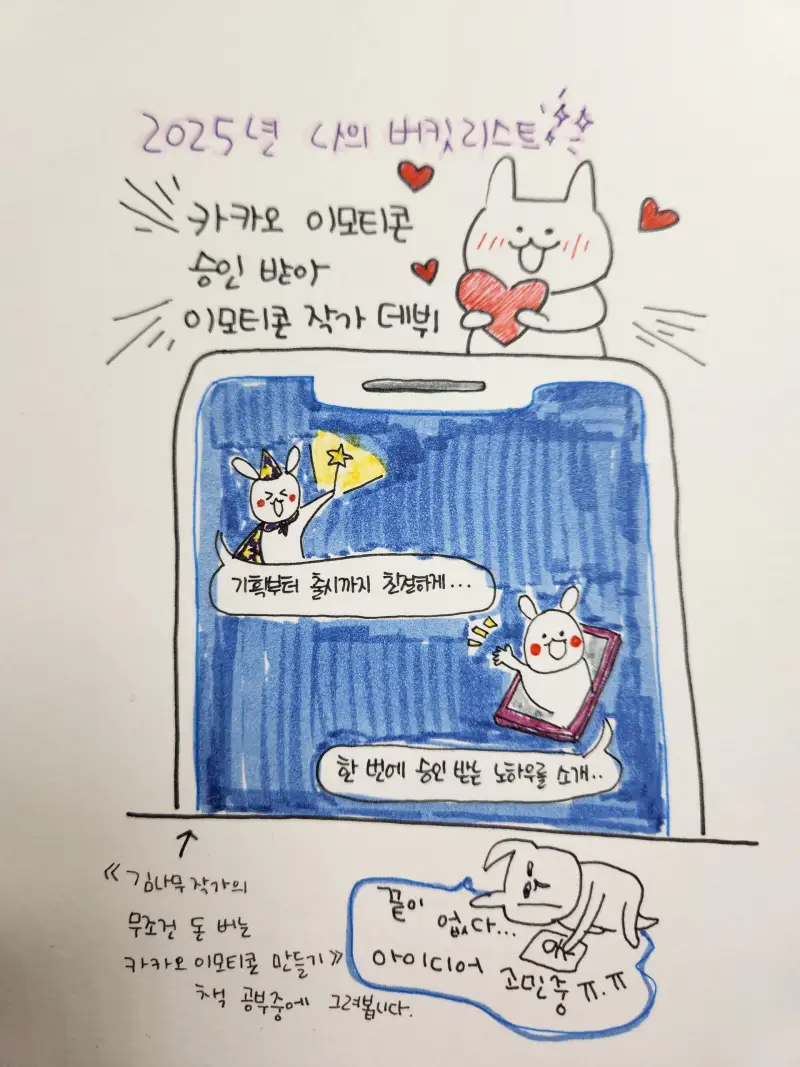 2025년 나의 버킷리스트
카카오 이모티콘
승인 받아
이모티콘 작가 데뷔
기획부터 출시까지 친절하게...
한 번에 승인 받는 노하우를 소개..
《김나무 작가의
무조건 돈 버는
카카오 이모티콘 만들기》
책 공부중에 그려봅니다.
끝이 없다...
아이디어 고민중 ㅠ.ㅠ